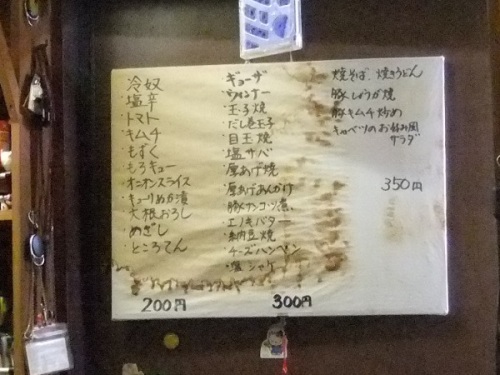 冷奴
塩辛
トマト
キムチ
もずく
もろキュー
オニオンスライス
キューリぬか漬
大根おろし
めざし
ところてん
200円
ギョーザ
ウインナー
玉子焼
だし巻玉子
目玉焼
塩サバ
厚あげ焼
厚あげあんかけ
豚ナンコツ煮
エノキバター
納豆焼
チーズハンペン
塩シャケ
300円
焼そば、焼きうどん
豚しょうが焼
豚キムチ炒め
キャベツのお好み風
サラダ
350円